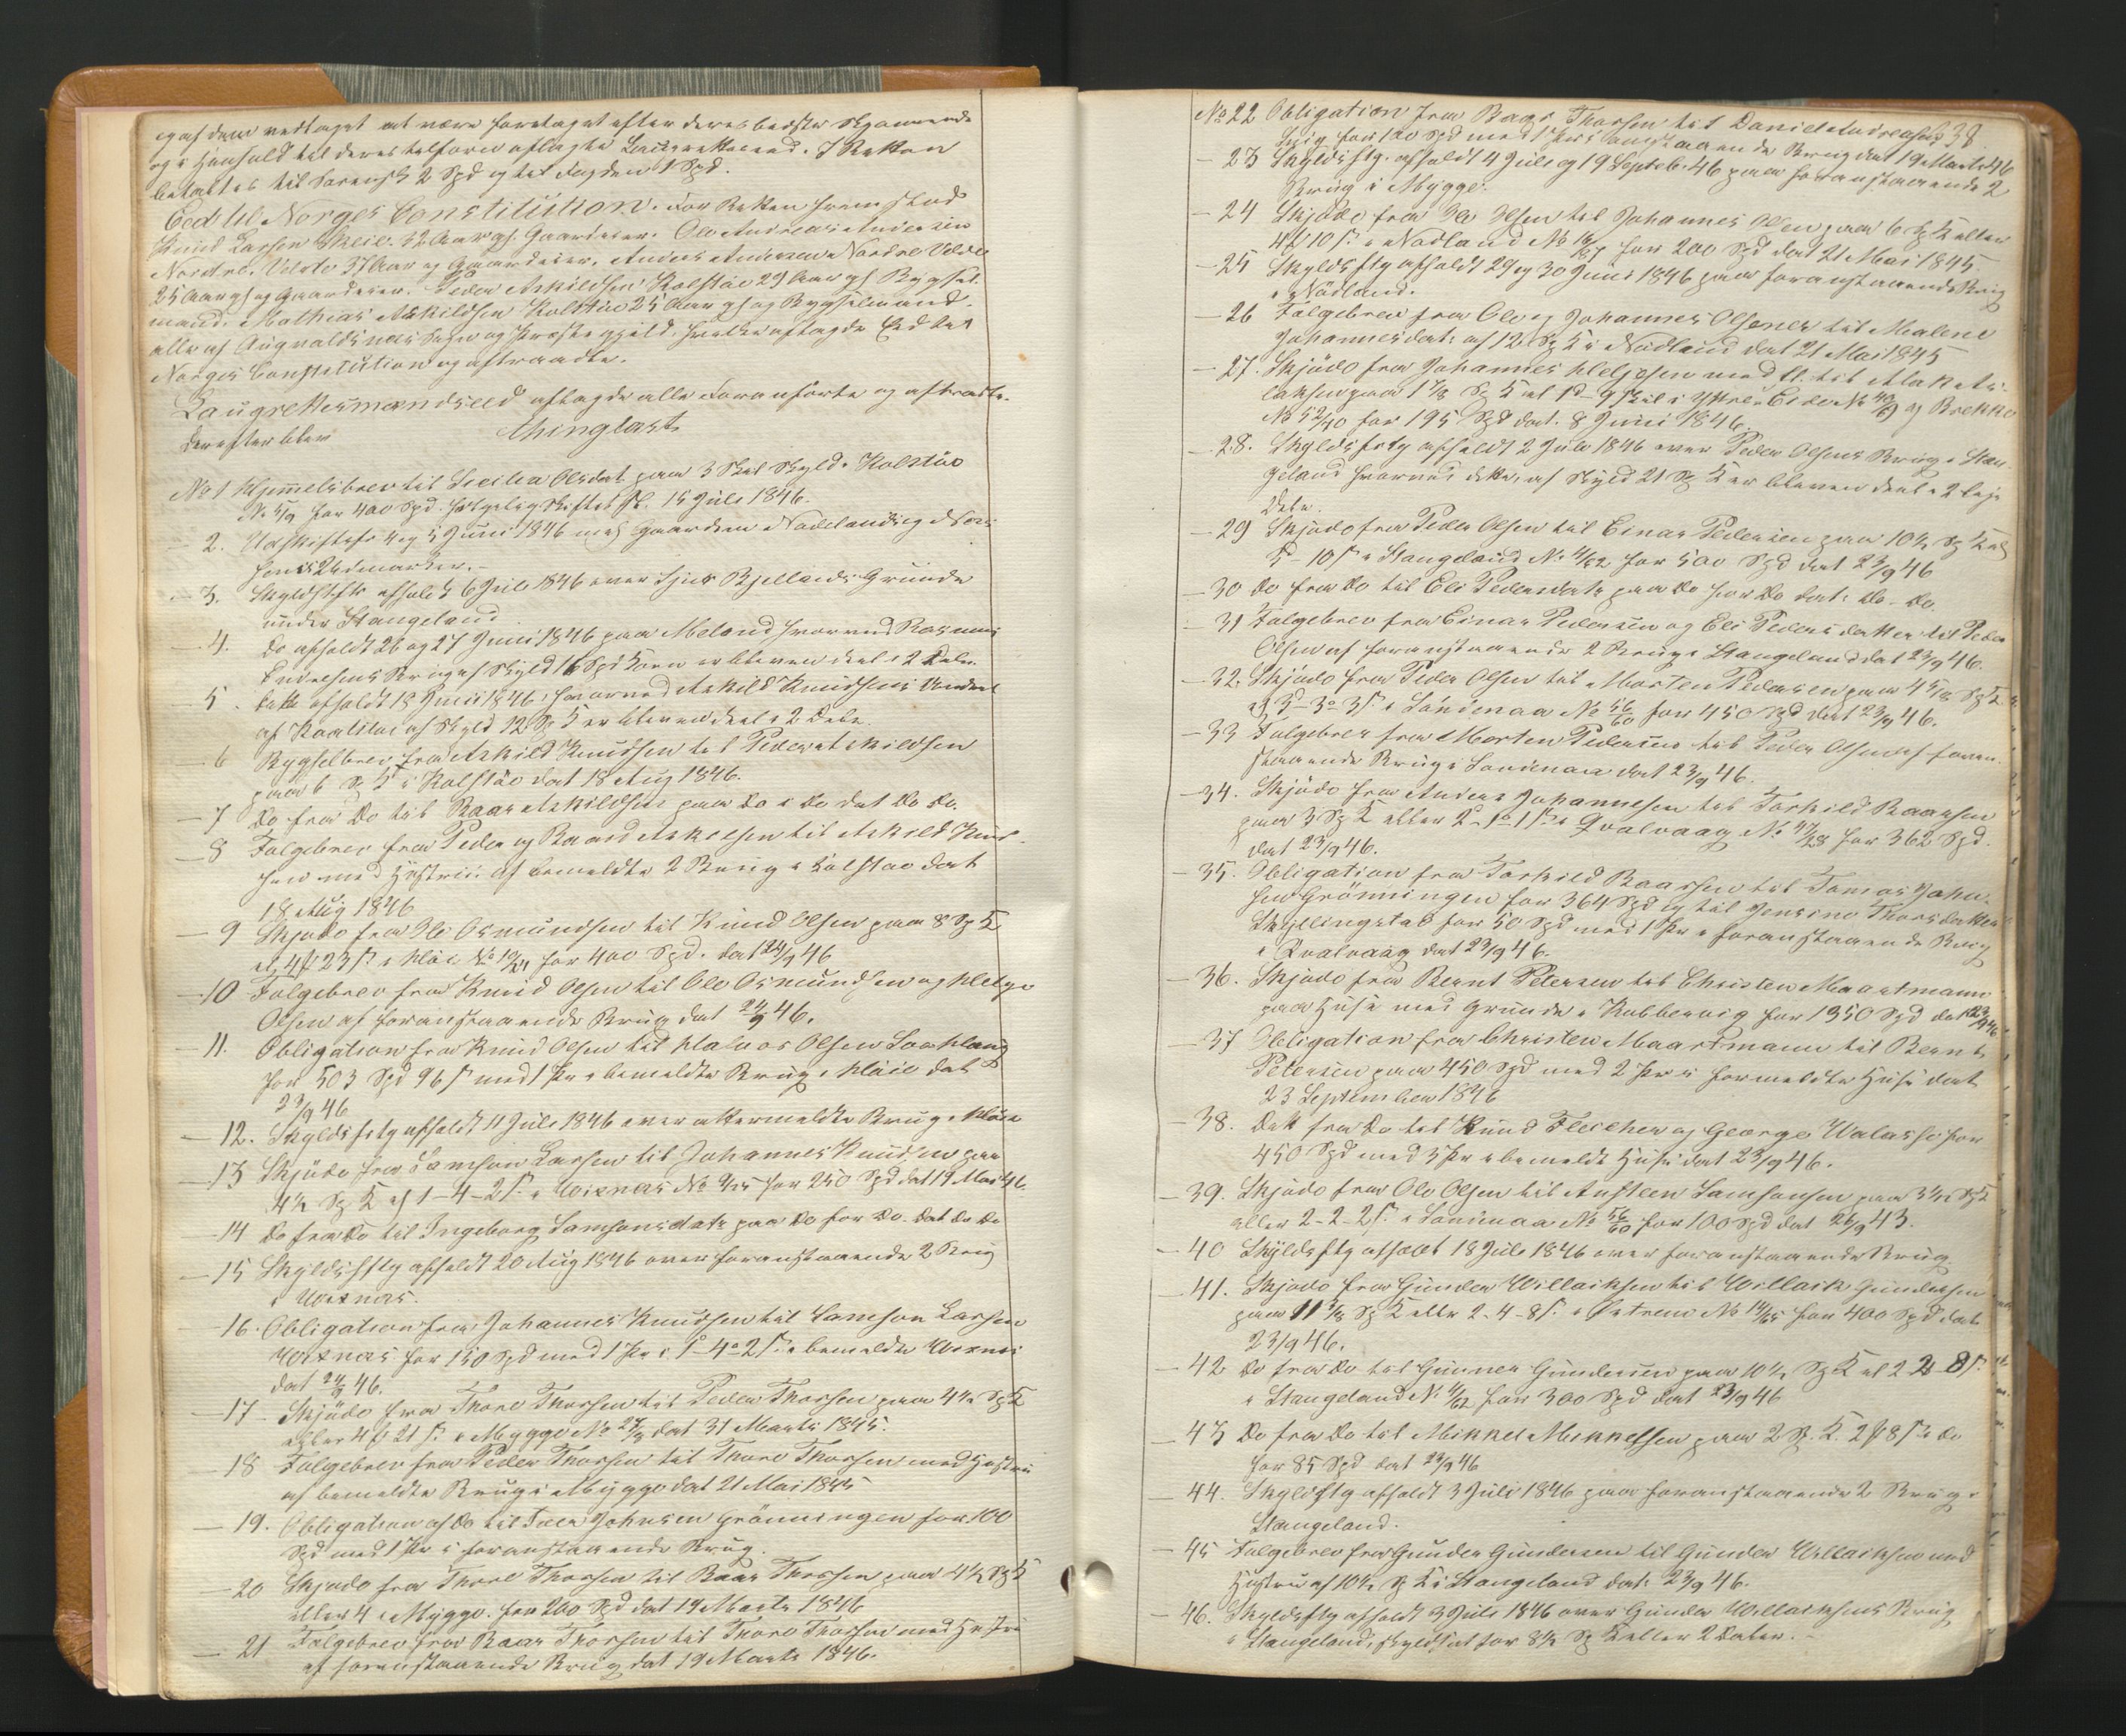 og af dem vedtaget at være foretaget efter deres bedste Skjønnende
og i Henhold til deres tilforn aflagte Laugretteseed. I Retten
betaltes til Sorensk 2 Spd og til Lagden 1 Spd.
Eed til Norges Constitution. For Retten fremstod
Knud Larsen Skeie 32 Aar gl. Gaardeier. Ole Andreas Andersen
Nordre Velde 37 Aar og Gaardeier. Anders Andersen Nordre Velde
25 Aar gl og Gaardeier. Peder Askildsen Kolstøe 29 Aar gl Bygsel-
mand. Mathias Askildsen Kolstøe 25 Aar gl og Bygselmand.
alle af Augvaldsnæs Sogn og Præstegjeld, hvilke aflagde Eed til
Norges Constitution og aftraadte.
Laugrettesmandseed aflagde alle Foranførte og aftraadte.
Derefter blev thinglæst
No 1 Hjemmelsbrev til Secilia Olsdat paa 3 Skil Skyld i Kolstøe
No 5/9 for 400 Spd. Følgelig Skiftet sl. 15 Juli 1846.
— 2. Udskiftsfr 4 og 5 Juni 1846 mel Gaardene Nodland og Nor-
henes Udmarker.-
— 3. Skyldsftr afholdt 6 Juli 1846 over Sjur Bjellands Grunde
under Stangeland
— 4. Do afholdt 26 og 27 Juni 1846 paa Meland hvorved Rasmus
Endresens Brug af Skyld 16 Spd Korn er bleven deelt i 2 Dele.
— 5. Dette afholdt 18 Juni 1846, hvorved Askild Knudsens Andeel
af Kaalstøe af Skyld 12 Sp K er bleven deelt i 2 Dele.
— 6 Bygselbrev fra Askild Knudsen til Peder Askildsen
paa 6 Sp K i Kolstøe dat 18 Aug 1846.
— 7 Do fra Do til Baar Askildsen paa Do i Do dat Do Do.
— 8 Følgebrev fra Peder og Baard Askelsen til Askild Knud-
sen med Hustru af bemeldte 2 Brug i Kolstøe dat
18 Aug 1846
— 9 Skjøde fra Ole Osmundsen til Knud Olsen paa 8 Sp K
el 4 ƒ 23 ß i Høie No 10/24 for 400 Spd. dat 24/9 46
— 10 Følgebrev fra Knud Olsen til Ole Osmundsen og Helge
Olsen af foranstaaende Brug dat 24/9 46.
— 11. Obligation fra Knud Olsen til Halvos Olsen
for 503 Spd 96 ß med 1 Pr i bemeldte Brug i Høie dat
23/9 46
— 12. Skyldsftg afholdt 11 Juli 1846 over ettermeldte Brug i Høie
— 13 Skjøde fra Samson Larsen til Johannes Knudsen paa
4½ Sp K el 1-4-2 ß. i Visnæs No 9/25 for 250 Spd dat 19 Mai 46.
— 14 Do fra Do til Ingeborg Samsonsdatr paa Do for Do. Dat Do Do
— 15 Skyldsftg afholdt 20 Aug 1846 over foranstaaende 2 Brug
i Visnæs.
— 16. Obligation fra Johannes Knudsen til Samson Larsen
Visnæs for 150 Spd med 1 Pr i 1-4-2 ß i bemeldte Visnæs
dat 24/9 46.
— 17 Skjøde fra Thore Thorsen til Peder Thorsen paa 4½ Sp K
eller 4 ƒ 21 ß. i Mygge No dat 31 Marts 1845.
— 18 Følgebrev fra Peder Thorsen til Thore Thorsen med Hustru
af bemeldte Brug i Mygge dat 21 Mai 1845
— 19. Obligation af Do til Johnsen Grønningen for 100
Spd med 1 Pr i foranstaaende Brug.
— 20 Skjøde fra Thore Thorsen til Baar Thorsen paa 4½ Sp K
eller 4 i Mygge. for 200 Spd dat 19 Marts 1846
— 21 Følgebrev fra Baar Thorsen til Thore Thorsen med Hustru
af foranstaaende Brug dat 19 Marts 1846.
38.
No 22 Obligation fra Baar Thorsen til Daniel Andreasen
for 120 Spd med 1 Pr i foranstaaende Brug dat 19 Marts 46
— 23 Skyldsftg. afholdt 4 Juli og 19 Septeb. 46 paa foranstaaende 2
Brug i Mygge.
— 24 Skjøde fra Ole Olsen til Johannes Olsen paa 6 Sp K eller
4 ƒ 10 ß. i Nodland No 16/27 for 200 Spd dat 21 Mai 1845
— 25 Skyldsftg afholdt 29 og 30 Juni 1846 paa foranstaaende Brug
i Nodland.
— 26 Følgebrev fra Ole og Johannes Olsener til Malene
Johannesdatr af 12 Sp K i Nodland dat 21 Mai 1845
— 27. Skjøde fra Johannes Helgesen med fl. til
paa 1 7/8 Sp K el 1 d - 9 Skil i Yttre Eide No 40/6 og Brekke
No 52/40 for 195 Spd dat. 8 Juni 1846.
— 28. Skyldsfrtg afholdt 2 Juli 1846 over Peder Olsens Brug i Stan-
geland hvorved dette, af Skyld 21 Sp K er bleven deelt i 2 lige
Dele.
— 29 Skjøde fra Peder Olsen til Einar Pedersen paa 10½ Sp K el
5 - 10 ß i Stangeland No 4/52 for 500 Spd dat 23/9 46
— 30 Do fra Do til Eli Pedersdatr paa Do for Do dat: Do - Do.
— 31 Følgebrev fra Einar Pedersen og Eli Pedersdatter til Peder
Olsen af foranstaaende 2 Brug i Stangeland dat 23/9 46.
— 32. Skjøde fra Peder Olsen til Morten Pedersen paa Sp K
el 3-3-3 ß i Søndenaa No 56/60 for 450 Spd dat 23/9 46.
— 33 Følgebrev fra Morten Pedersen til Peder Olsen af foran-
staaende Brug i Søndenaa dat 23/9 46.
— 34. Skjøde fra Anders Johannesen til Torkild Baarsen
paa 3 Sp K eller 2-1-1 ß i Qvalvaag No 47/28 for 362 Spd.
dat 23/9 46.
— 35. Obligation fra Torkild Baarsen til Tomas John-
sen Grønningen for 364 Spd og til Jensine Thorsdatter
Skillingstad for 50 Spd med 1 Pr i foranstaaende Brug
i Qvalvaag dat 23/9 46.
— 36. Skjøde fra Bernt Petersen til Christen Maartmann
paa Huse med Grunde i Kobbervig for 1350 Spd dat 23/9 46
— 37 Obligation fra Christen Maartmann til Bernt
Petersen paa 450 Spd med 2 Pr i formeldte Huse dat
23 September 1846
— 38. Dette fra Do til Knud Fleischer og George Walasse for
450 Spd med 3 Pr i bemeldte Huse dat 23/9 46.
— 39. Skjøde fra Ole Olsen til Austeen Samsonsen paa 3½ Sp K
eller 2-2-2 ß. i Søndenaa No 56/60 for 100 Spd dat 26/9 43.
— 40 Skyldsftg afholdt 18 Juli 1846 over foranstaaende Brug
— 41. Skjøde fra Gunder Willaksen til Willaik Gundersen
paa 11 Sp K eller 2-4-8 ß. i Østrem No 14/65 for 400 Spd dat
23/9 46.
— 42 Do fra Do til Gunner Gundersen paa 10½ Sp K el 2 2 8 ß
i Stangeland No 4/52 for 300 Spd dat 23/9 46
— 43 Do fra Do til Mikkel Mikkelsen paa 2 Sp. K. 2 ƒ 8 ß i Do
for 85 Spd dat 23/9 46
— 44. Skyldsftg afholdt 3 Juli 1846 paa foranstaaende 2 Brug i
Stangeland.
— 45 Følgebrev fra Gunder Gundersen til Gunder Willaiksen med
Hustru af 10½ Sp K i Stangeland dat: 23/9 46.
— 46. Skyldsftg afholdt 3 Juli 1846 over Gunder Willaiksens Brug
i Stangeland, skyldsat for 8½ Sp K eller 2 Daler.-